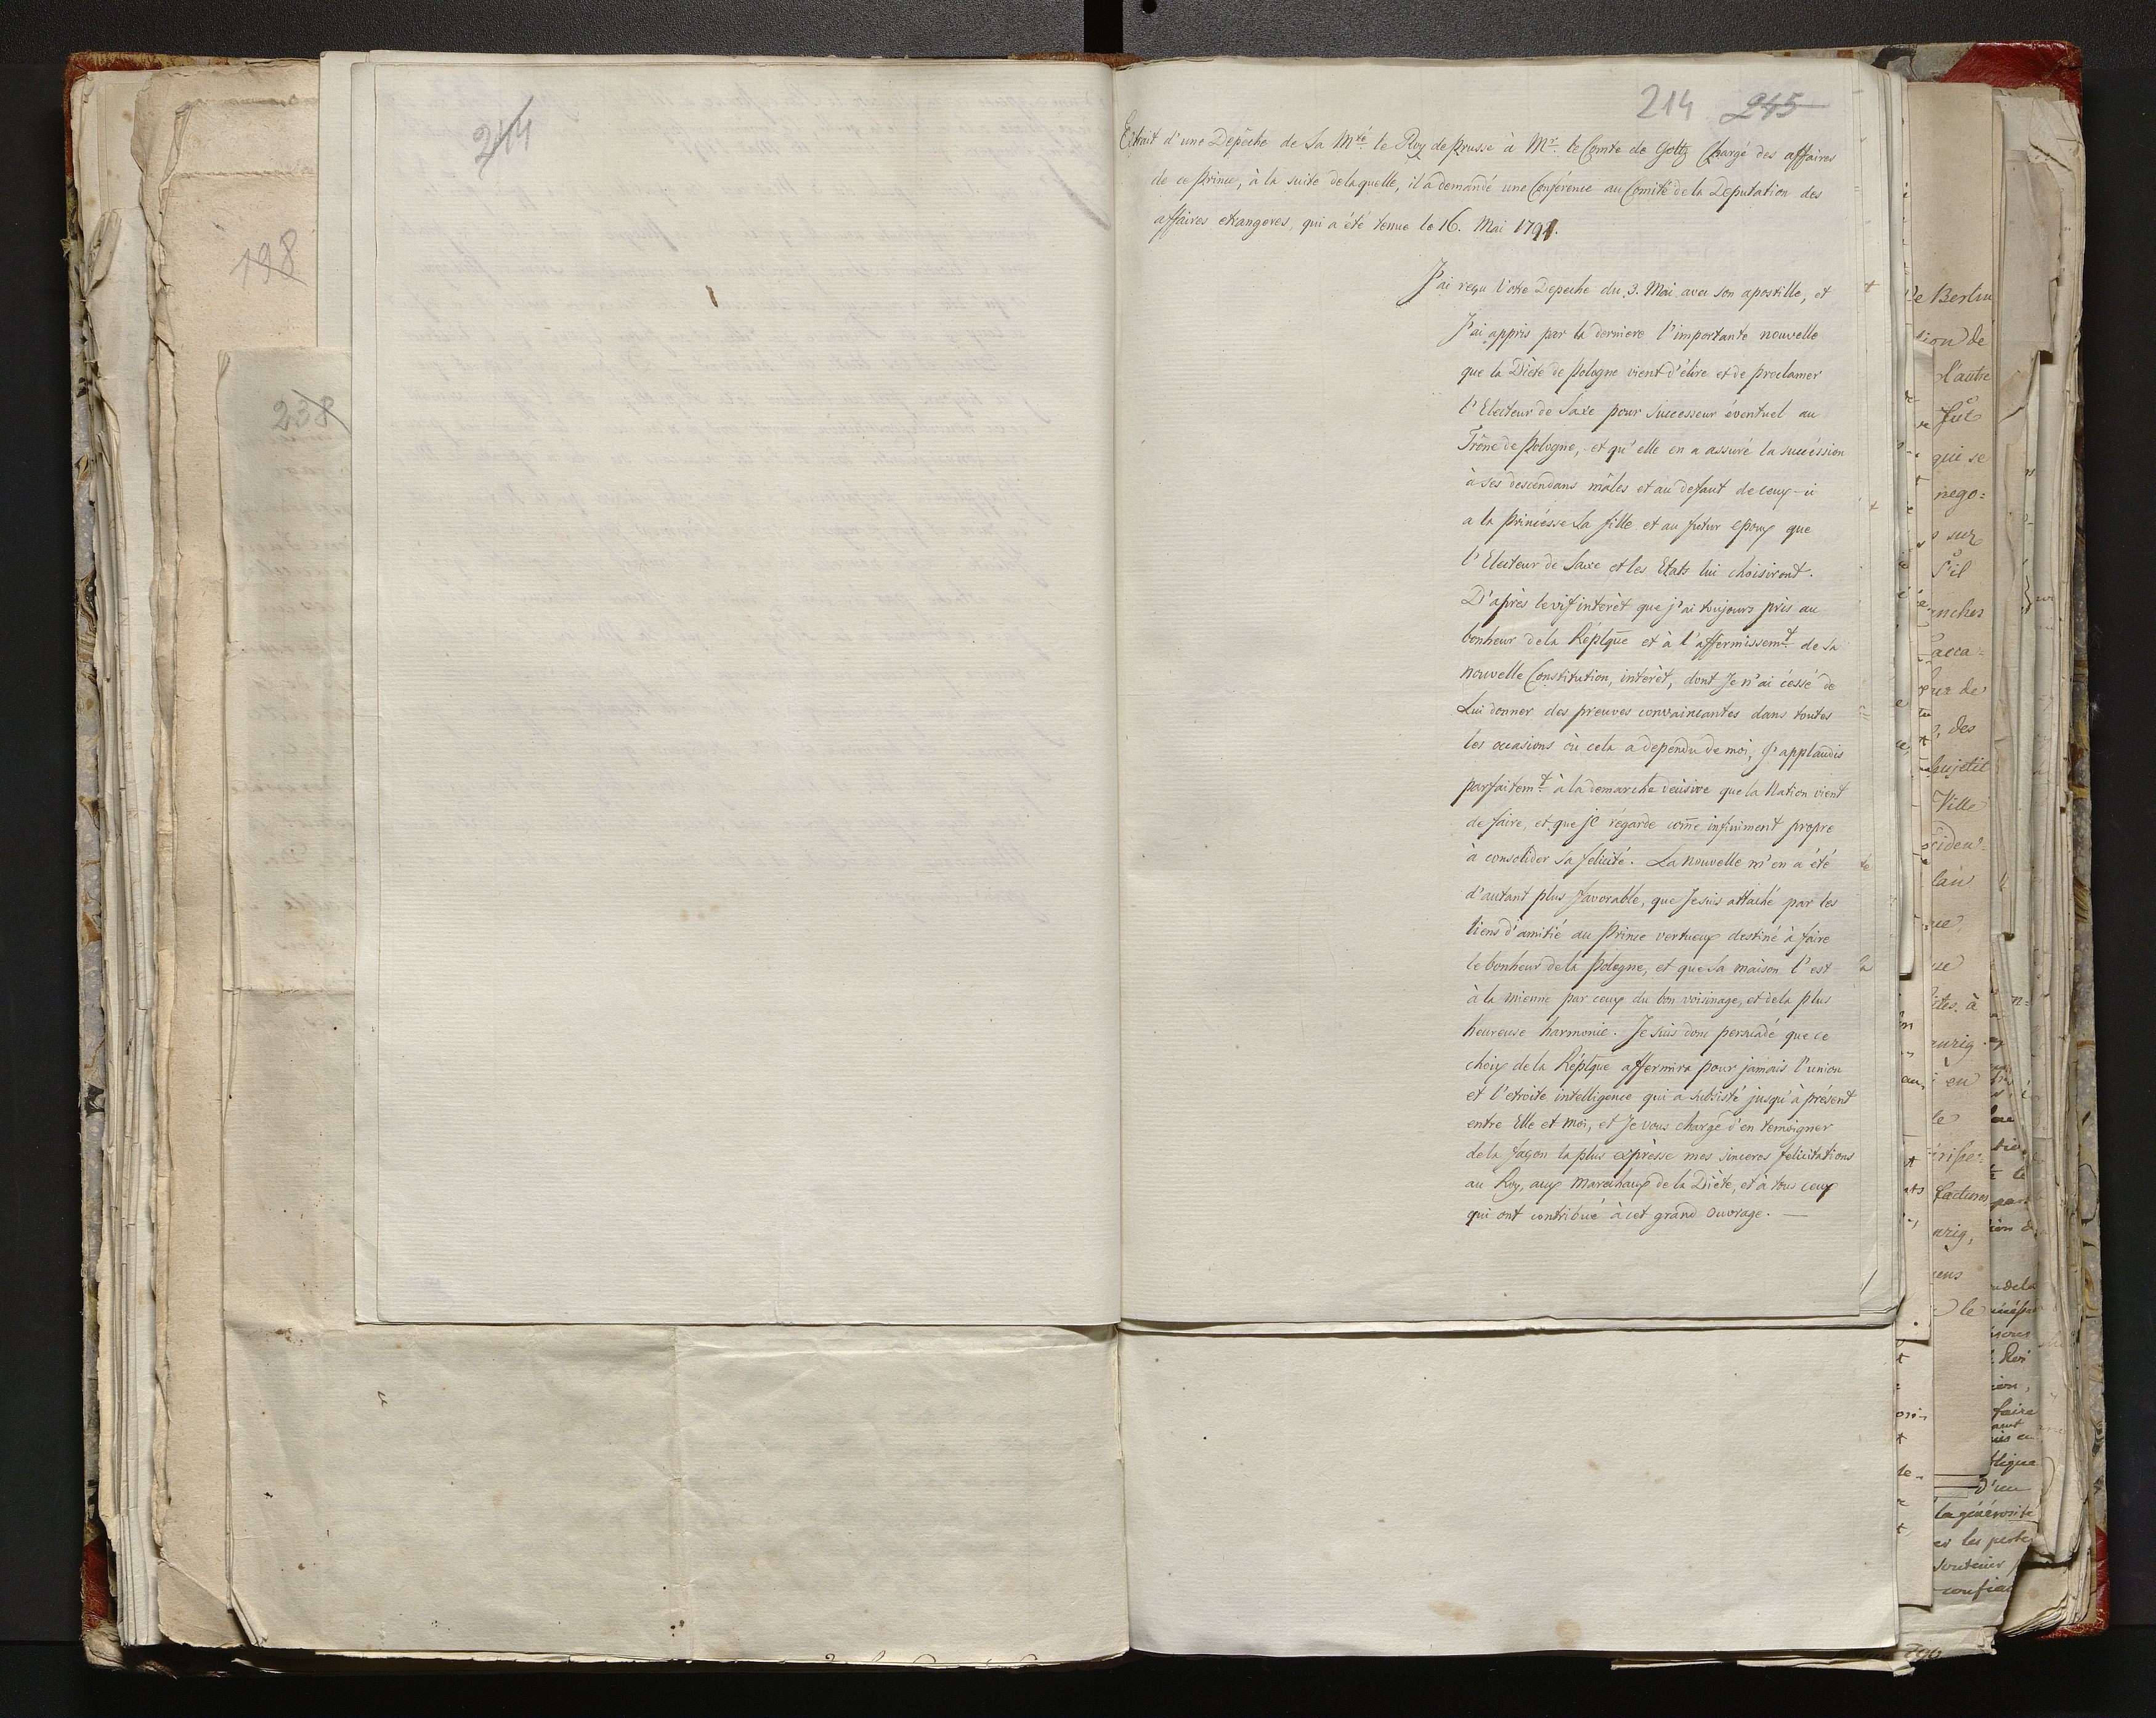 198
238
214
214 245
Extrait d'une Depêche de Sa Mté le Roy de Prusse à Mr. le Comte de Goltz Chargé des affaires
de ce Prince, à la suite de laquelle, il a demandé une Conférence au Comité de la Deputation des
affaires etrangeres, qui a été tenue le 16. Mai 1791.
J'ai reçu Votre Depeche du 3. Mai avec son apostille, et
J'ai appris par la derniere l'importante nouvelle
que la Diète de Pologne vient d'élire et de proclamer
l'Electeur de Saxe pour Successeur éventuel au
Trône de Pologne, et qu'elle en a assuré la succéssion
à ses descendans mâles et au defaut de ceux-ci
a la Princesse Sa fille et au futur epoux que
l'Electeur de Saxe et les Etats lui choisiront.
D'après le vif intérèt que j'ai toujours pris au
bonheur de la Réplque et à l'affermissemt. de Sa
nouvelle Constitution, intérèt, dont Je n'ai cessé de
Lui donner des preuves convaincantes dans toutes
les occasions où cela a dependu de moi, J'applaudis
parfaitemt. à la demarche décisive que la Nation vient
de faire, et que je régarde come infiniment propre
à consolider Sa felicité. La nouvelle m'en a été
d'autant plus favorable, que Je suis attaché par les
liens d'amitié au Prince vertueux destiné à faire
le bonheur de la Pologne, et que Sa maison l'est
à la mienne par ceux du bon voisinage, et de la plus
heureuse harmonie. Je suis donc persuadé que ce
choix de la Réplque affermira pour jamais l'union
et l'etroite intelligence qui a subsisté jusqu'à présent
entre Elle et moi, et Je vous charge d'en temoigner
de la façon la plus expresse mes sinceres felicitations
au Roy, aux Marechaux de la Diète, et à tous ceux
qui ont contribué à cet grand Ouvrage. —
de Berlin
l'autre
fut
qui se
nego:
sur
S'il
des
Ville
factures
le
la générosité
les perte
Soutenir